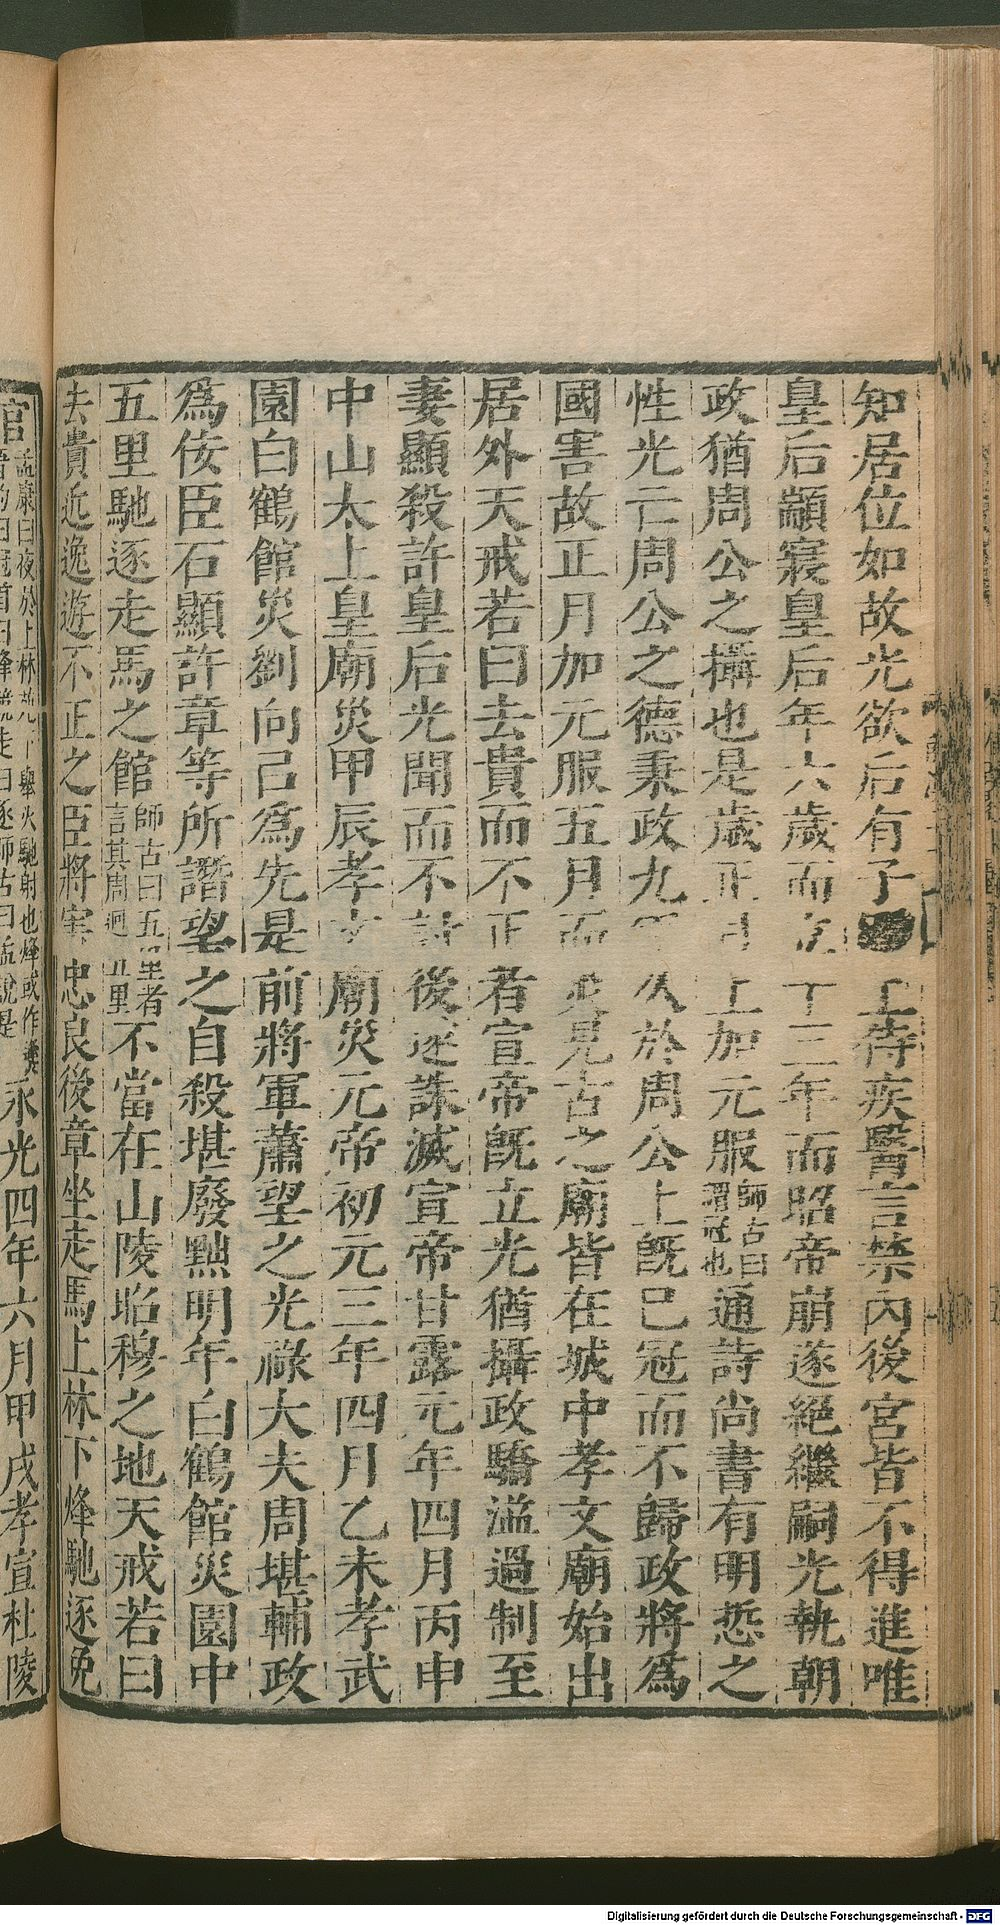 知居位如故光欲后有子上侍疾醫言禁內後宮皆不得進唯
皇后顓寑皇后年六歲而立十三年而昭帝崩遂絕繼嗣光執朝
政猶周公之攝也是歲正月上加元服師古曰謂冠也通詩尚書有明悊之
性光亡周公之德秉政九年久於周公上旣已冠而不歸政將爲
國害故正月加元服五月而災見古之廟皆在城中孝文廟始出
居外天戒若曰去貴而不正者宣帝旣立光猶攝政驕溢過制至
妻顯殺許皇后光聞而不討後遂誅滅宣帝甘露元年四月丙申
中山太上皇廟災甲辰孝文廟災元帝初元三年四月乙未孝武
園白鶴館災劉向㠯爲先是前將軍蕭望之光祿大夫周堪輔政
爲佞臣石顯許章等所譖望之自殺堪廢黜明年白鶴館災園中
五里馳逐走馬之館師古曰五里者言其周迴五里不當在山陵昭穆之地天戒若曰
去貴近逸遊不正之臣將害忠良後章坐走馬上林下烽馳逐免
官孟康曰夜於上林苑下舉火馳射也烽或作㷭晉灼曰冠首曰烽競走曰逐師古曰孟說是永光四年六月甲戌孝宣杜陵
Digitalisierung gefördert durch die Deutsche Forschungsgemeinschaft - DFG